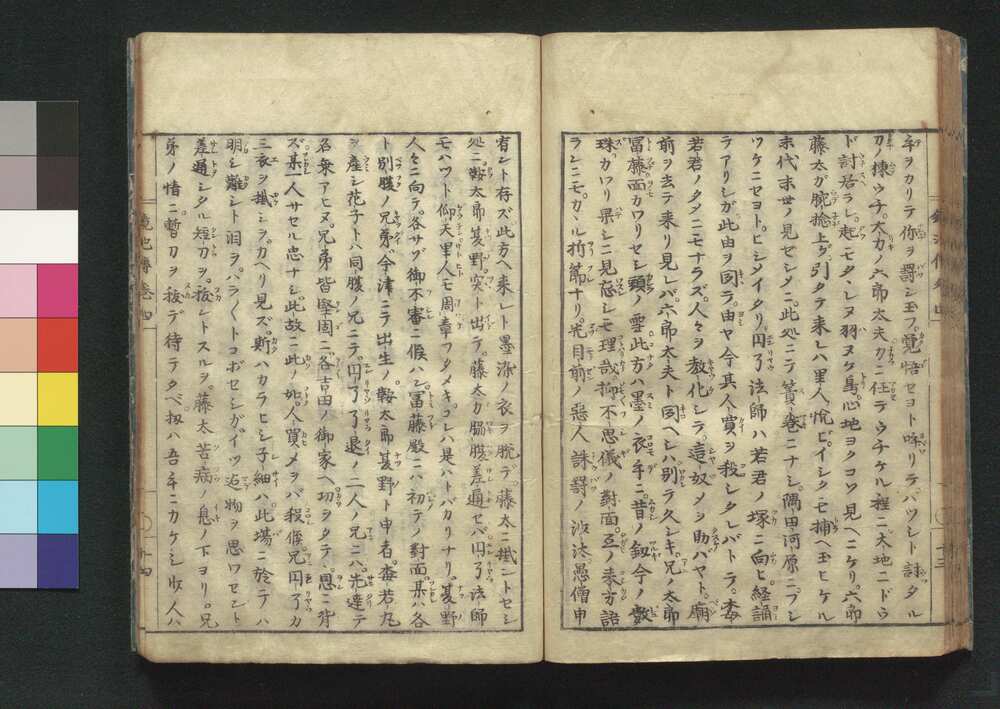 手ヲカリテ你ヲ罸シ玉フ。覚悟セヨト呼リテハツシト討タル
刀ノ棟ウチ。大力ノ六郎太夫カニ任テウチケル程ニ大地ニドウ
ド討居ラレ。起モタヽレヌ羽ヌケ鳥。心地ヨクコソ見ヘニケリ。六郎
藤太ガ腕捻上ゲ引タテ来レハ里人悦ビ。イシクモ捕ヘ玉ヒケル
末代末世ノ見セシメニ。此処ニテ簀巻ニナシ。隅田河原ニフシ
ツケニセヨト。ヒシメイタリ。円了法師ハ若君ノ塚ニ向ヒ。経誦
テアリシガ此由ヲ聞テ。由ヤ今其人買ヲ殺シタレバトテ。梅
若君ノタメニモナラズ。人々ヲ教化シテ。這奴メヲ助バヤト。廟
前ヲ去テ来リ見レバ。六郎太夫ト聞ヘシハ別テ久シキ。兄ノ太郎
冨藤面カワリセシ頭ノ雪此方ハ墨ノ衣手ニ。昔ノ釼今ノ数
珠カワリ果シニ見忘レモ理哉抑不思儀ノ対面。互ノ来方語
ランニモ。カヽル折節ナリ。先目前ノ悪人誅罸ノ沙汰。愚僧申
宥ント存ズ此方ヘ来レト墨染ノ衣ヲ脱デ。藤太ニ掛ントセシ
処ニ鞍太郎夏野。突ト出テ。藤太カ脇腹差通セバ円了法師
モハツト仰天里人モ周章フタメキ。コレハ是ハトバカリナリ。夏野
人々ニ向テ。各サゾ御不審ニ候ハン。冨藤殿ニハ初テノ対面某ハ各
ト別腹ノ兄弟今津ニテ出生ノ。鞍太郎夏野ト申者。梅若丸
ヲ産シ花子トハ同腹ノ兄ニテ。円了了退ノ二人ノ兄ニハ。先達テ
名乗アヒヌ。兄弟皆堅固ニ各吉田ノ御家ヘ功ヲタテ。恩ニ背
ズ。某一人サセル忠ナシ此故ニ此ノ地人買メヲバ殺候。兄円了カ
三衣ヲ掛シヲ。カヘリ見ズ。斯ハカラヒシ子細ハ。此場ニ於テハ
明シ難シト泪ヲ。ハラ〳〵トコボセシガ。イツ迄物ヲ思ワセント
差通シタル短刀ヲ。抜ントスルヲ。藤太苦病ノ息ノ下ヨリ。兄
弟ノ情ニ暫刀ヲ抜デ待テタベ。扨ハ吾手ニカケシ少人ハ